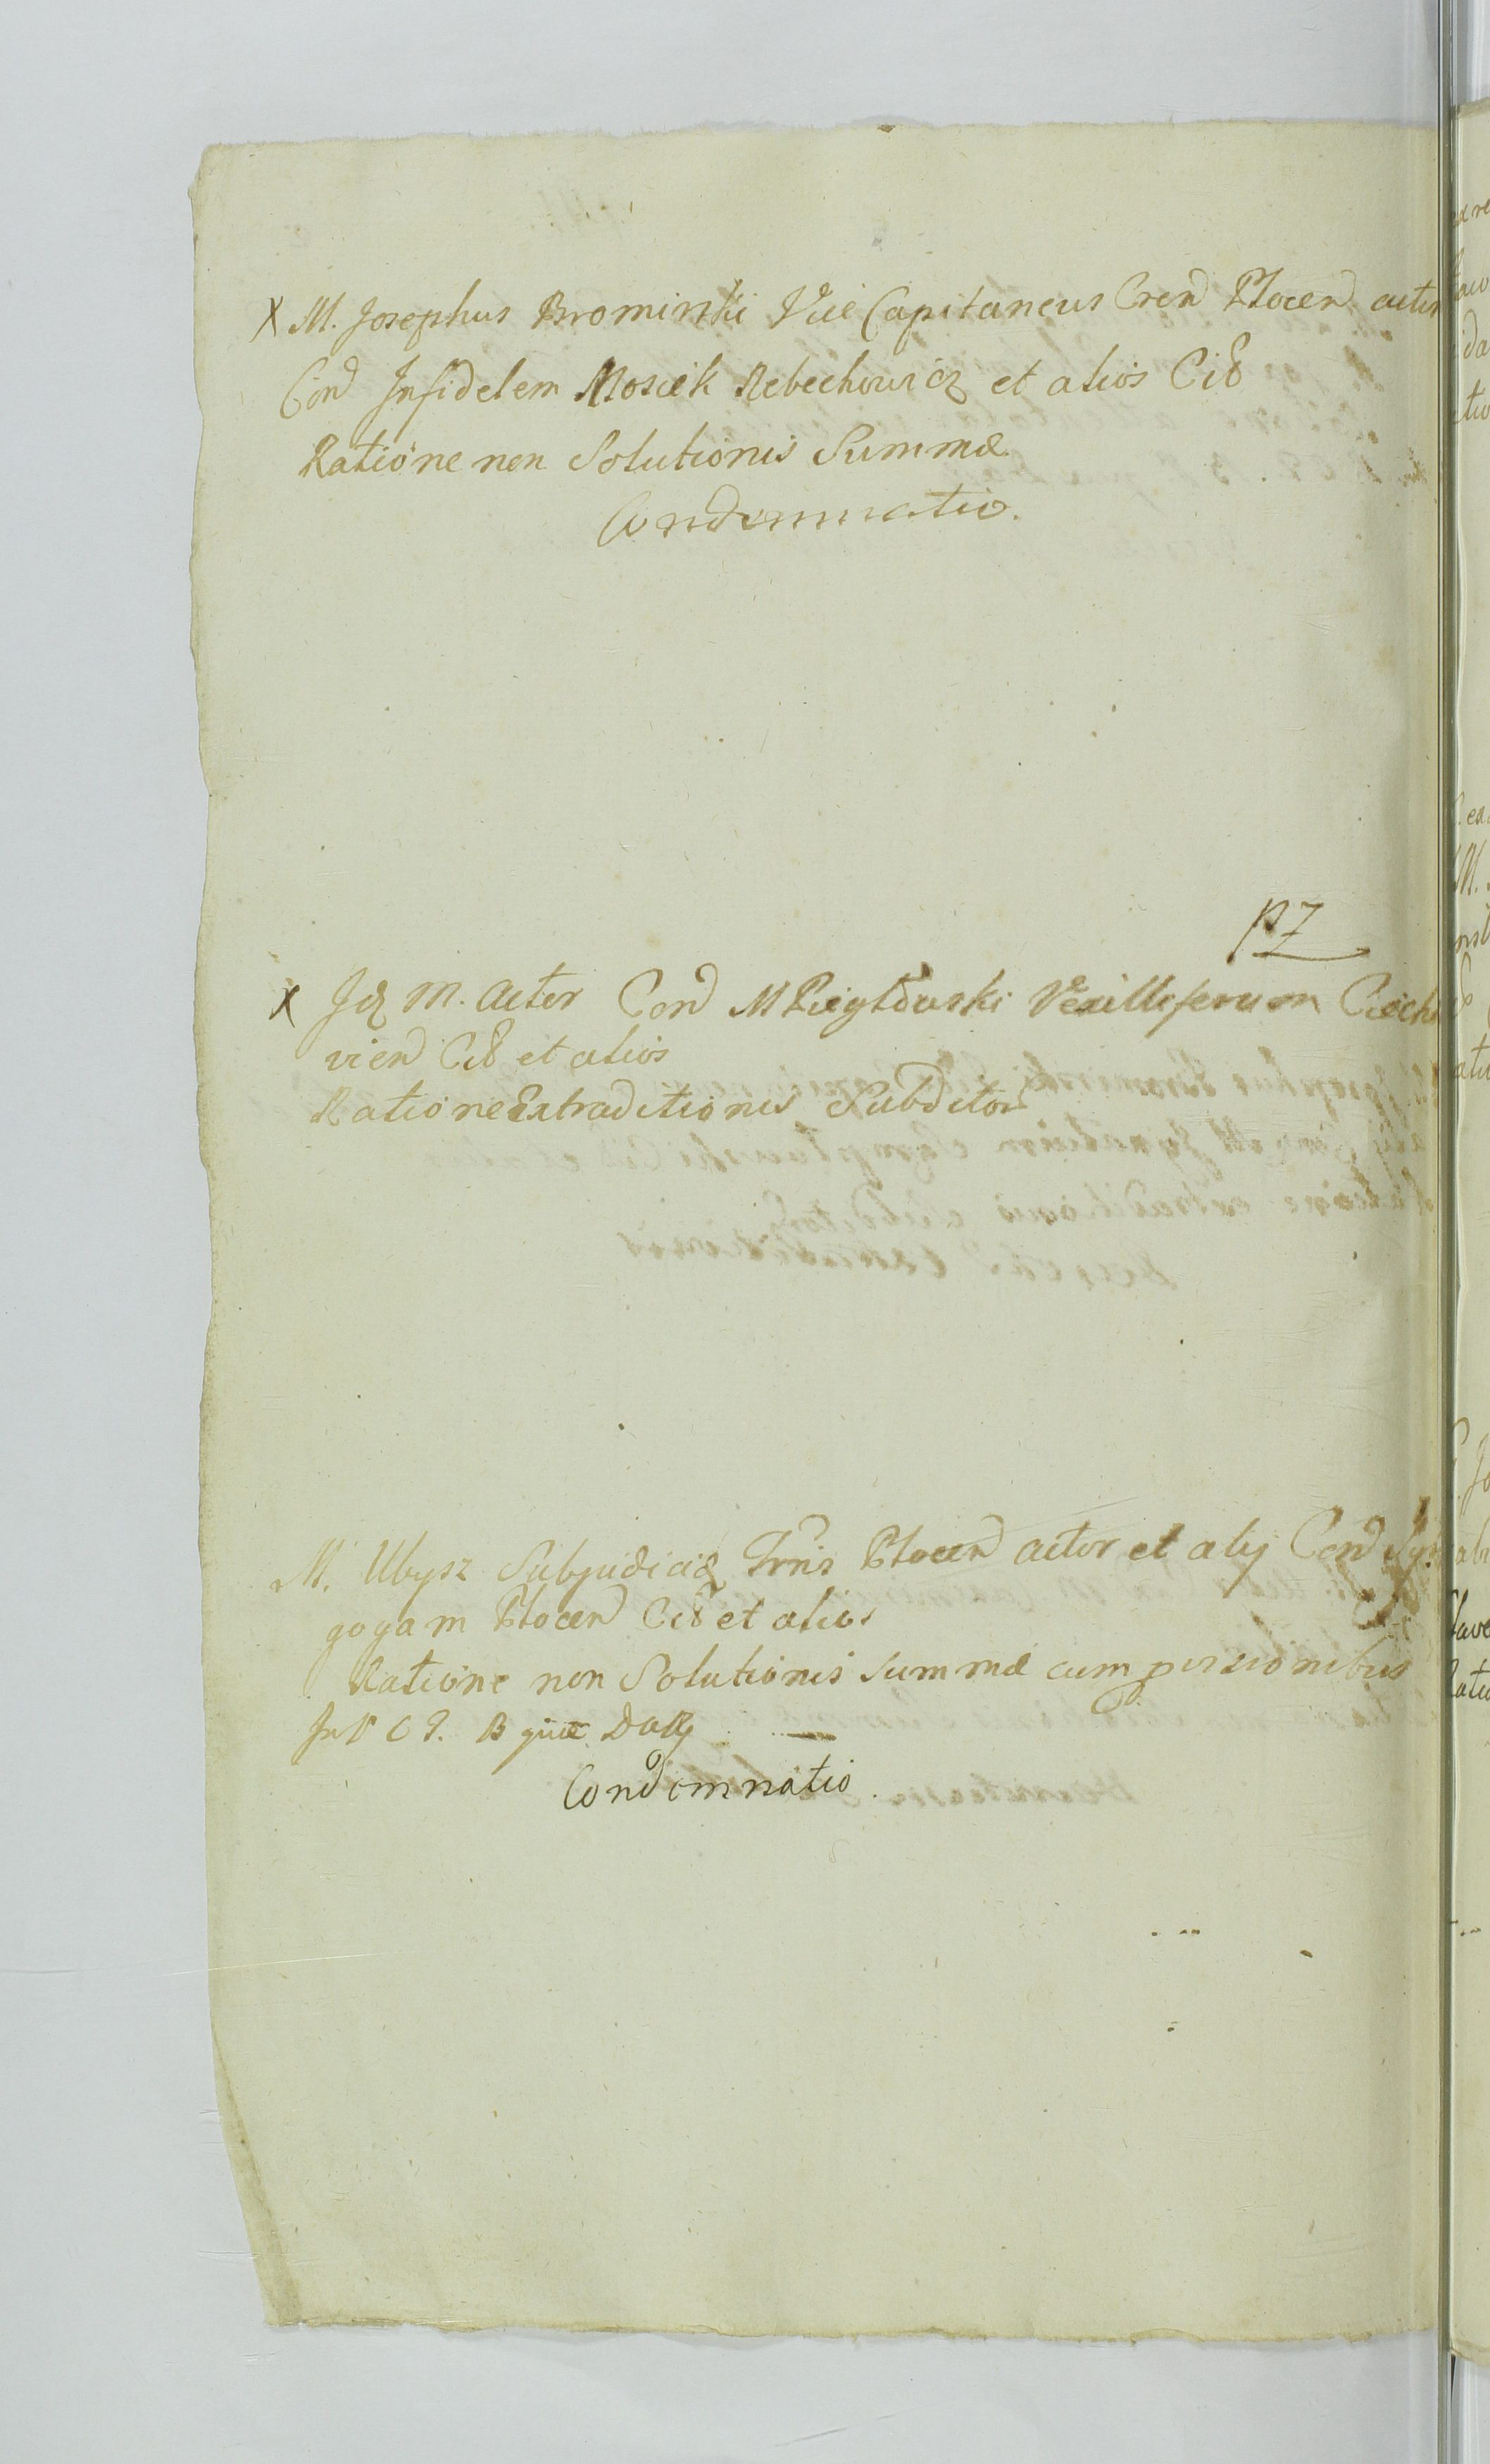 X M. Josephus Brominski Vice Capitaneus Cren Plocen actor
Con Infidelem Mosiek Rebechowicz et alios Cit
Ratione non Solutionis Summæ
Condemnatio.
PZ
X Jd M. Actor Con M Piegłowski Vexilliferum Ciecha
vien Cit et alios
Ratione Extraditionis Subditor
M. Ubysz Subjudicia Trris Plocen actor et alij Con Syna
gogam Plocen Cit et alios
Ratione non Solutionis Summæ cum provisionibus
quæ
Condemnatio.